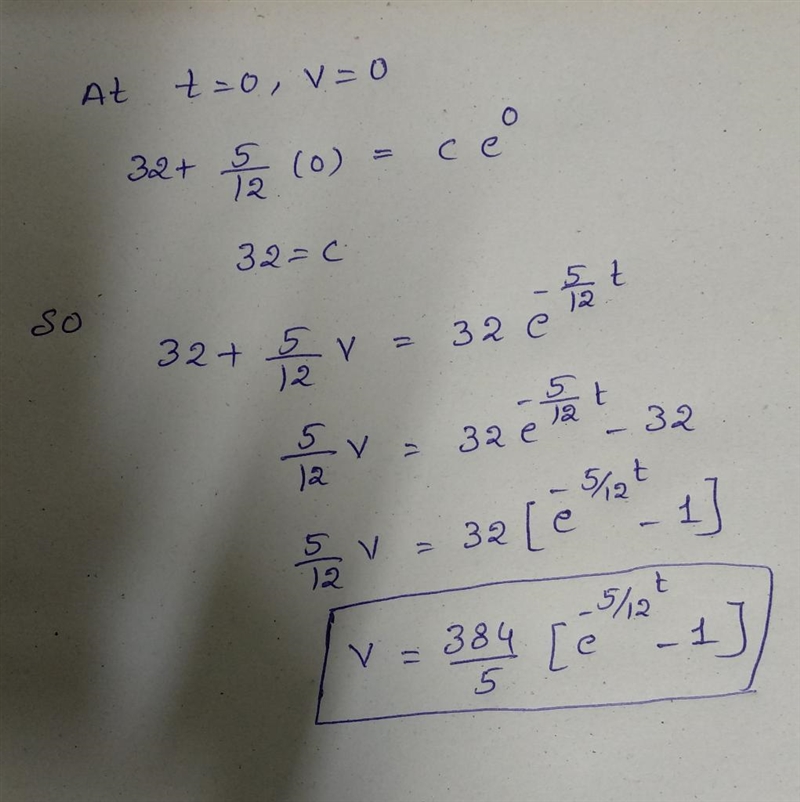 At t=0, v=0
32+ 5/12 (0) = c e^0
32=c
So 32+ 5/12 v = 32 e^{-5/12 t}
5/12 v = 32 e^{-5/12 t} - 32
5/12 v = 32 [e^{-5/12 t} - 1]
v = 384/5 [e^{-5/12 t} - 1]